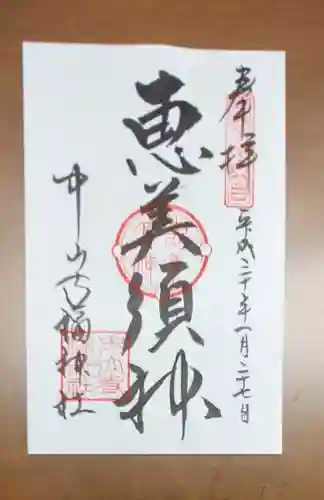 奉拝
平成二十年一月二十七日
恵美須神
中山福神社